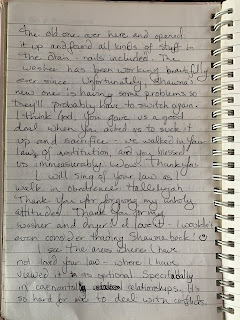 the old one over here and opened
it up and found all kinds of stuff in
the drain - nails included. The
washer has been working beautifully
ever since. Unfortunately, Shawna's
new one is having some problems so
they'll probably have to switch again.
I think God, you gave us a good
deal when you asked us to suck it
up and sacrifice - we walked in your
law of restitution and you blessed
us immeasurably. Wow. Thank you
I will sing of your law as I
walk in obedience. Hallelujah
Thank you for forgiving my unholy
attitudes. Thank you for my
washer and dryer. I love it - I wouldn't
even consider trading Shawna back! ☺
I see the areas where I have
not loved your law - where I have
viewed it as optional. Specifically
in covenantal relationships. It's
so hard for me to deal with conflicts.